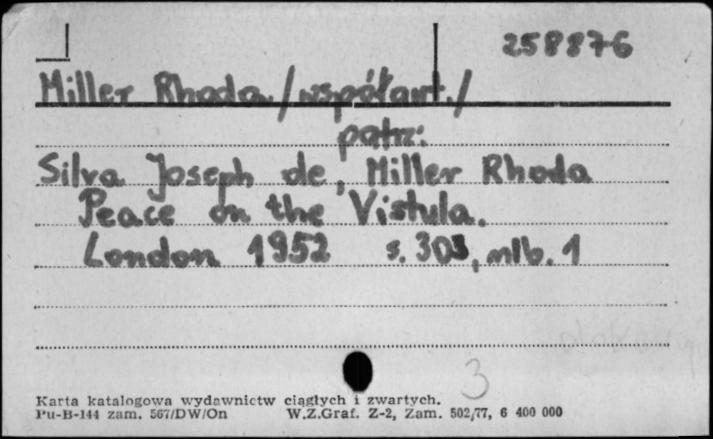 258876
Miller Rhoda /współaut./
patrz:
Silva Joseph de, Miller Rhoda
Peace on the Vistula.
London 1952 s. 303, nlb. 1
3
Karta katalogowa wydawnictw ciągłych i zwartych.
Pu-B-144 zam. 567/DW/On W.Z.Graf. Z-2, Zam. 502/77, 6 400 000